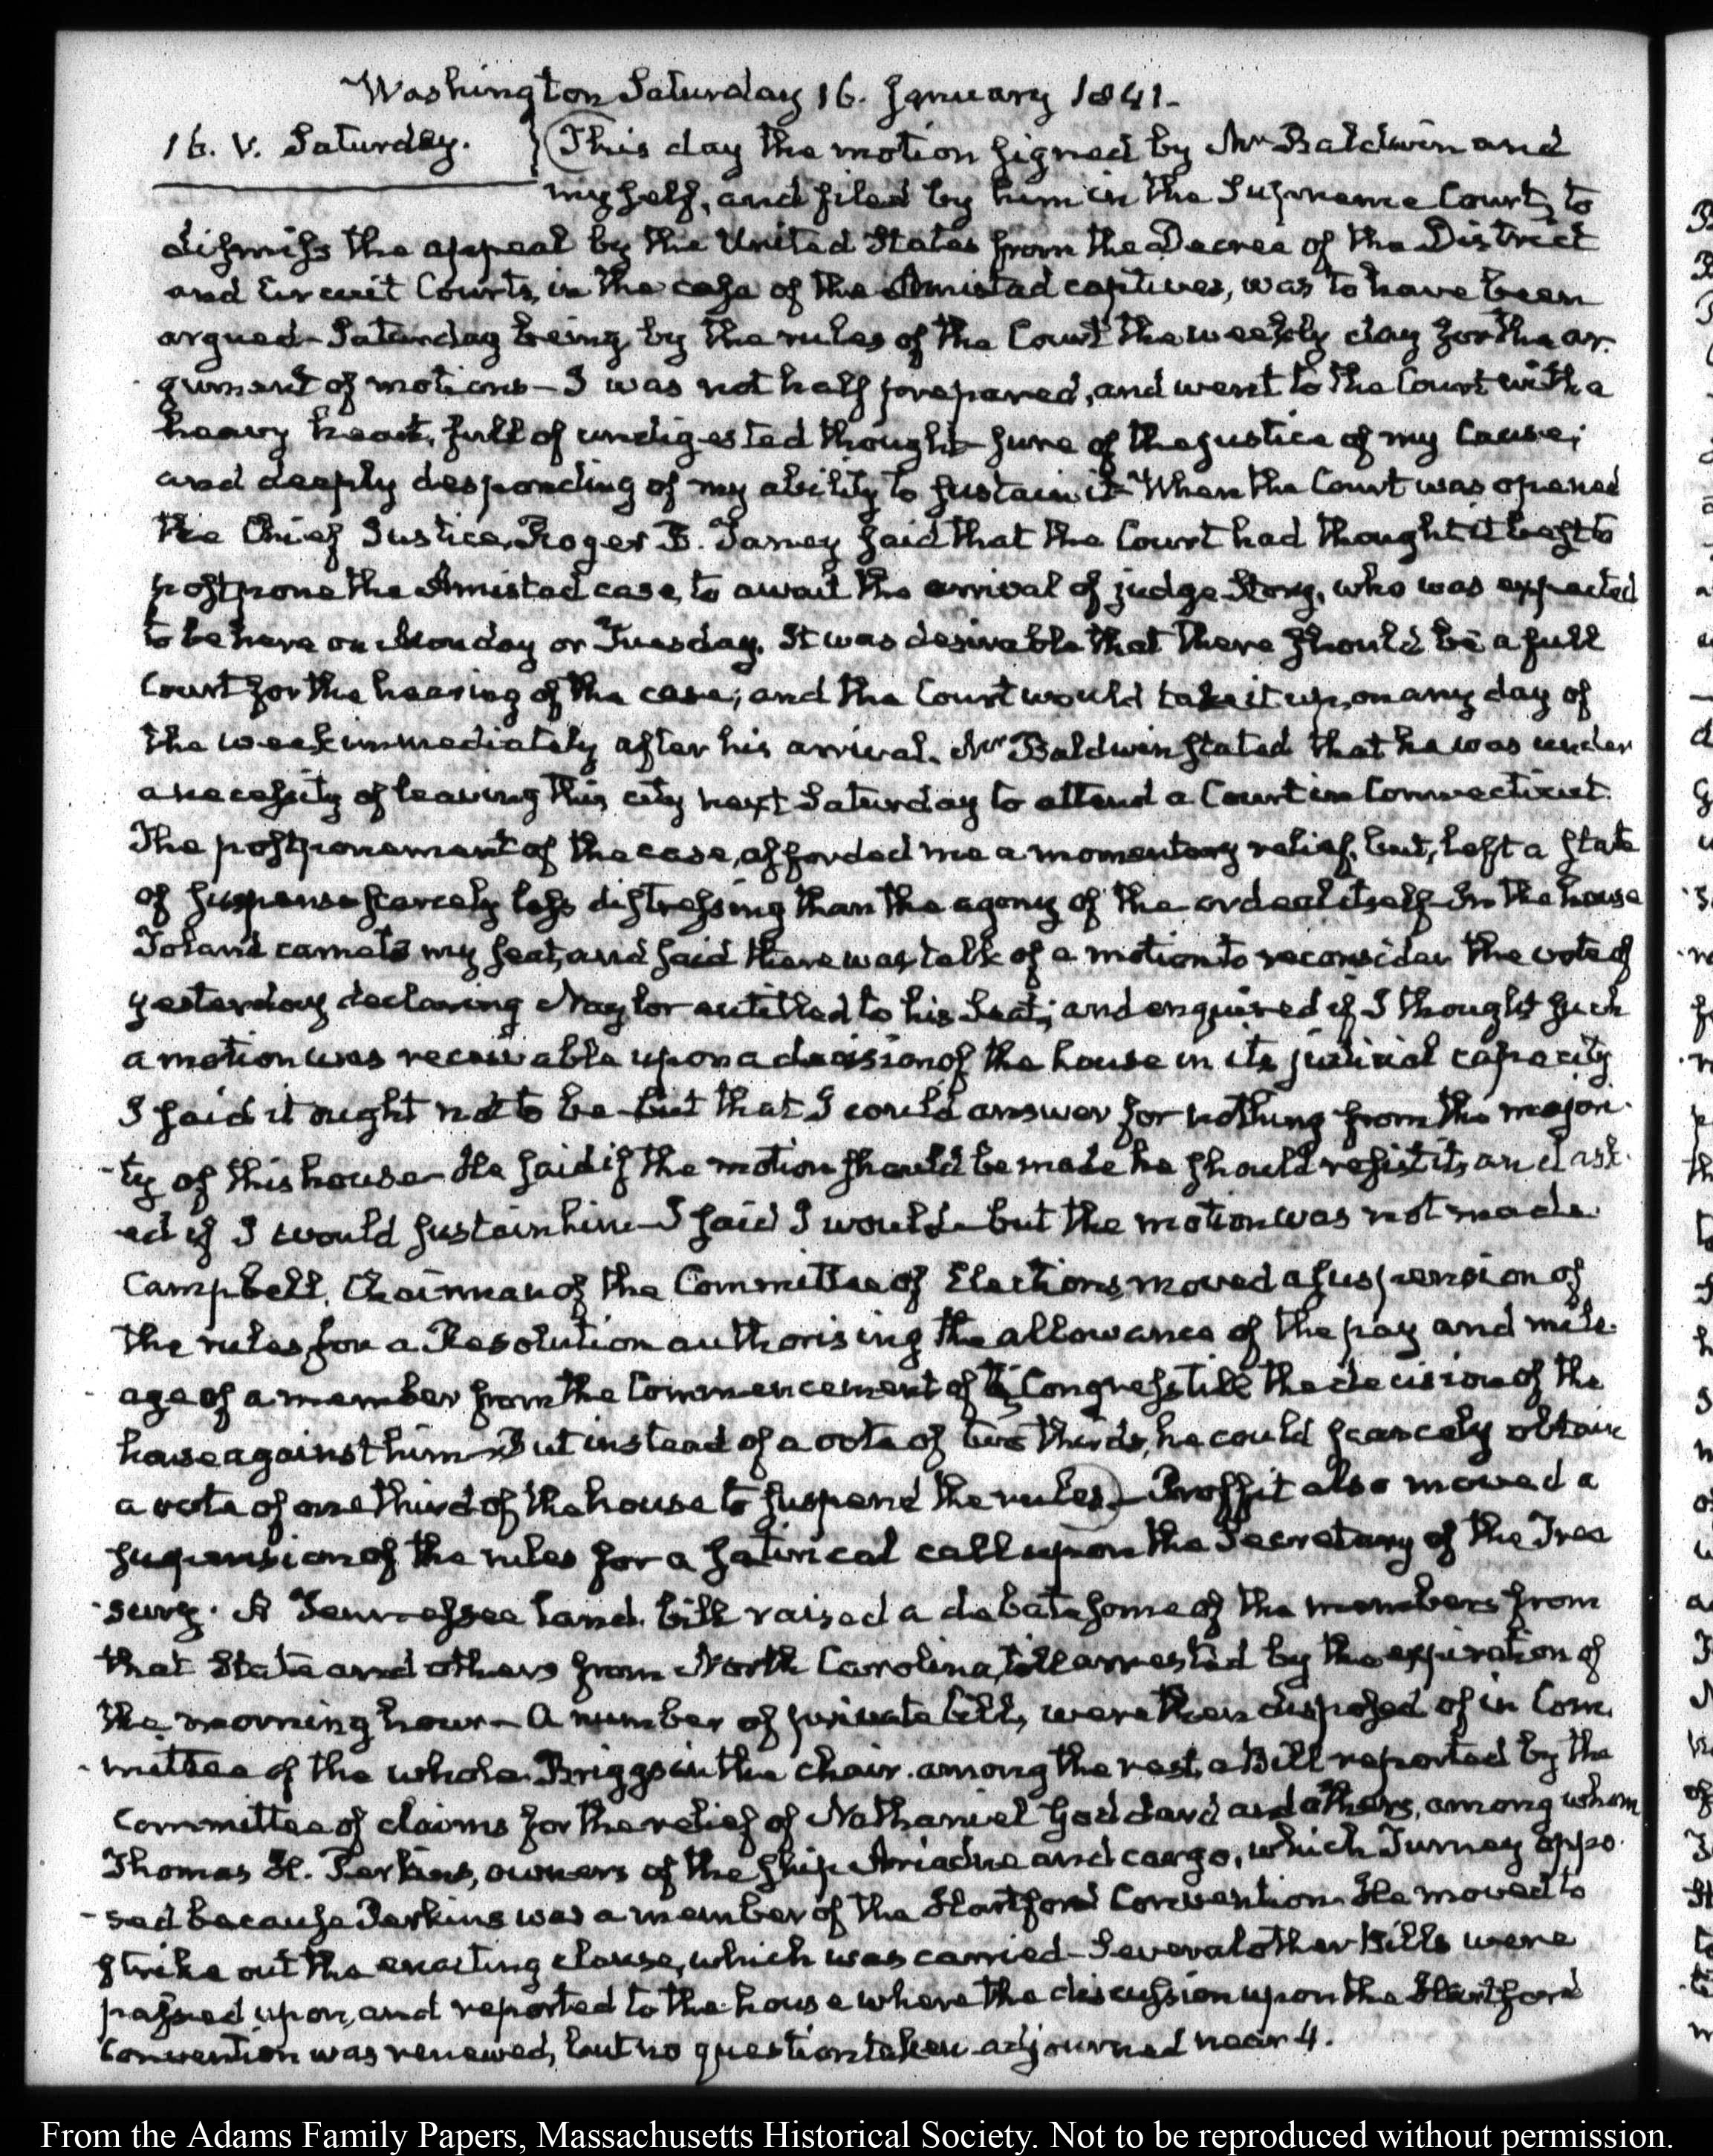 Washington Saturday 16. January 1841.
16. V. Saturday. } This day the motion signed by Mr Baldwin and
myself, and filed by him in the Supreme Court, to
dismiss the appeal by the United States from the Decree of the District
and Circuit Courts, in the case of the Amistad captives, was to have been
argued – Saturday being by the rules of the Court the weekly day for the ar-
gument of motions – I was not half prepared, and went to the Court with a
heavy heart, full of undigested thought – sure of the justice of my cause;
and deeply desponding of my ability to sustain it – When the Court was opened
the Chief Justice, Roger B. Taney said that the Court had thought it best to
postpone the Amistad case, to await the arrival of judge Story, who was expected
to be here on Monday or Tuesday. It was desirable that there should be a full
Court for the hearing of the case; and the Court would take it up, on any day of
the week immediately after his arrival. Mr Baldwin stated that he was under
a necessity of leaving this city next Saturday to attend a Court in Connecticut.
The postponement of the case, afforded me a momentary relief, but, left a state
of suspense scarcely less distressing than the agony of the ordeal itself – In the house
Toland came to my seat, and said there was talk of a motion to reconsider the vote of
yesterday declaring Naylor entitled to his Seat; and enquired if I thought such
a motion was receivable upon a decision of the house in its judicial capacity
I said it ought not to be – but that I could answer for nothing from the majori-
ty of this house – He said if the motion should be made he should resist it, and ask-
ed if I would sustain him – I said I would – but the motion was not made.
Campbell, Chairman of the Committee of Elections, moved a suspension of
the rules, for a Resolution authorising the allowance of the pay and mile-
age of a member from the Commencement of the Congress till the decision of the
house against him – But instead of a vote of two thirds, he could scarcely obtain
a vote of one third of the house to suspend the rules – Proffit also moved a
suspension of the rules for a satirical call upon the Secretary of the Trea
sury. A Tennessee land bill raised a debate some of the members from
that State and others from North Carolina, till arrested by the expiration of
the morning hour – A number of private bills, were then disposed of in Com-
mittee of the whole. Briggs in the chair. among the rest, a Bill reported by the
Committee of claims for the relief of Nathaniel Goddard and others, among whom
Thomas H. Perkins, owners of the ship Ariadne and cargo, which Turney oppo-
sed because Perkins was a member of the Hartford Convention. He moved to
strike out the enacting clause, which was carried – Several other Bills were
passed upon, and reported to the house where the discussion upon the Hartford
Convention was renewed, but no question taken – adjourned near 4.
From the Adams Family Papers, Massachusetts Historical Society. Not to be reproduced without permission.